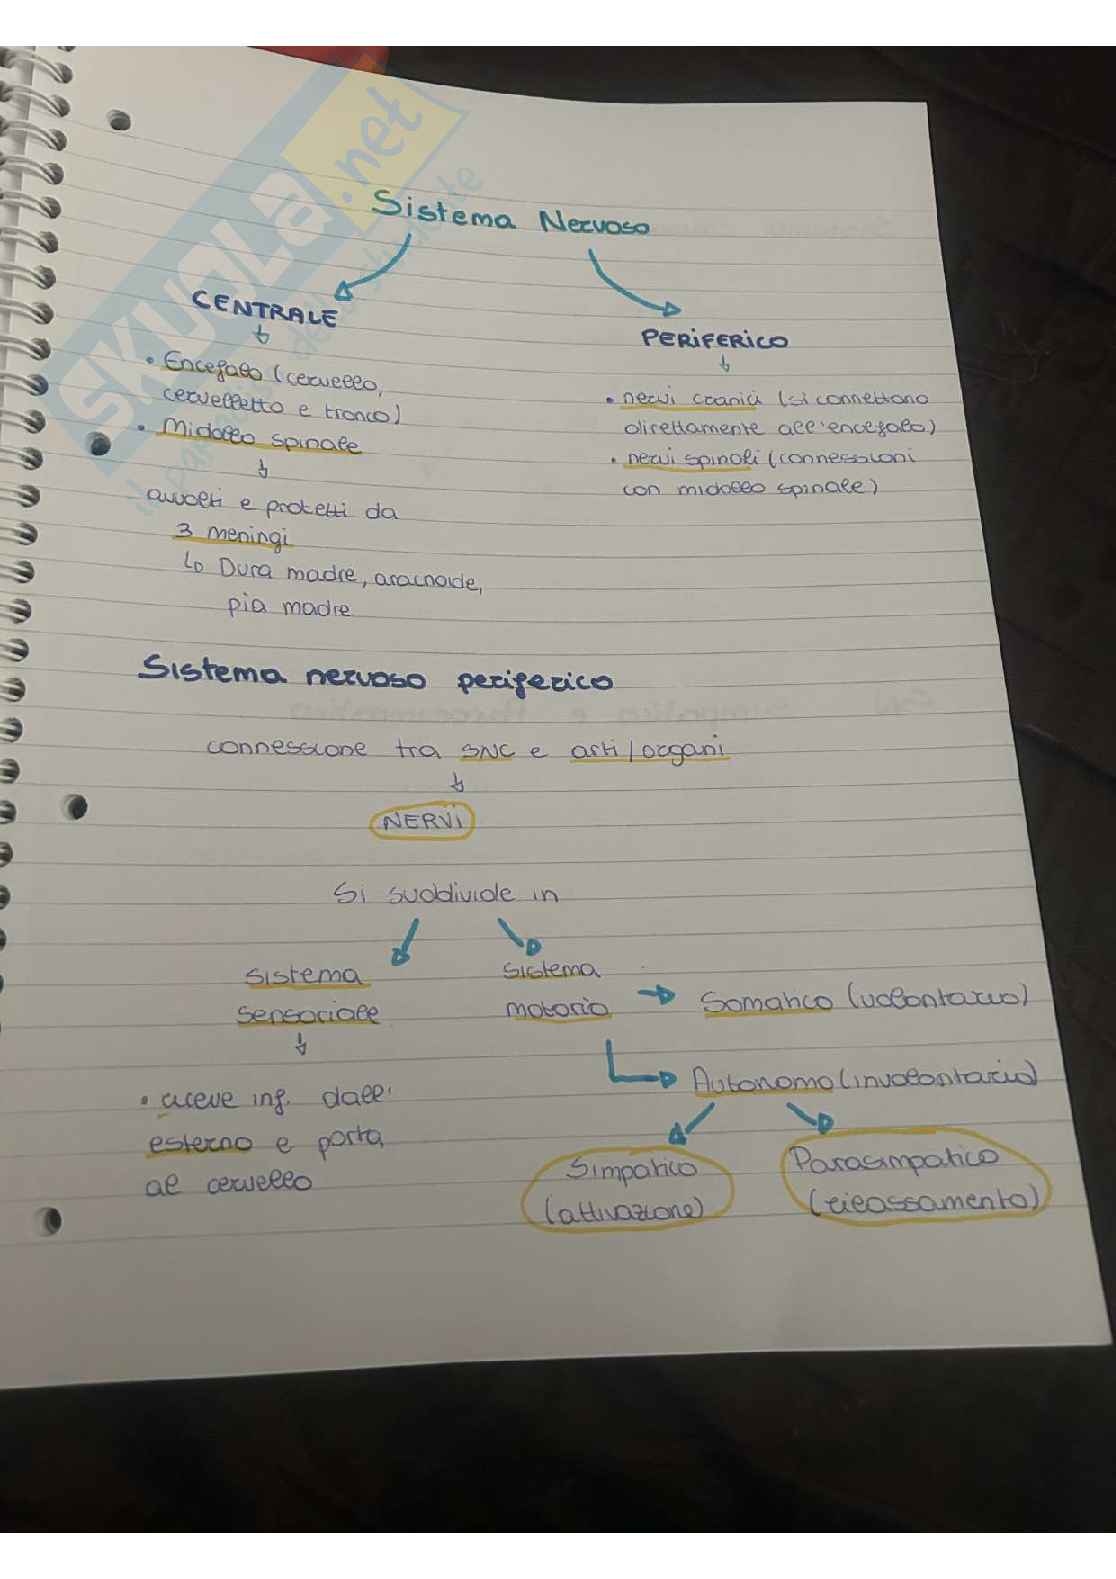 SKUOLA.net
Sistema Nervoso
CENTRALE
• Encefalo (cervello,
cervelletto e tronco)
• Midollo spinale
avvolti e protetti da
3 meningi
Dura madre, aracnoide,
pia madre
PERIFERICO
• nervi cranici (si connettono
direttamente all'encefalo)
• nervi spinali (connessioni
con midollo spinale)
Sistema nervoso periferico
connessione tra SNC e arti/organi
NERVI
Si suddivide in
Sistema
sensoriale
• riceve inf. dall'
esterno e porta
al cervello
Sistema
motorio
Somatico (volontario)
Autonomo (involontario)
Simpatico
(attivazione)
Parasimpatico
(rilassamento)